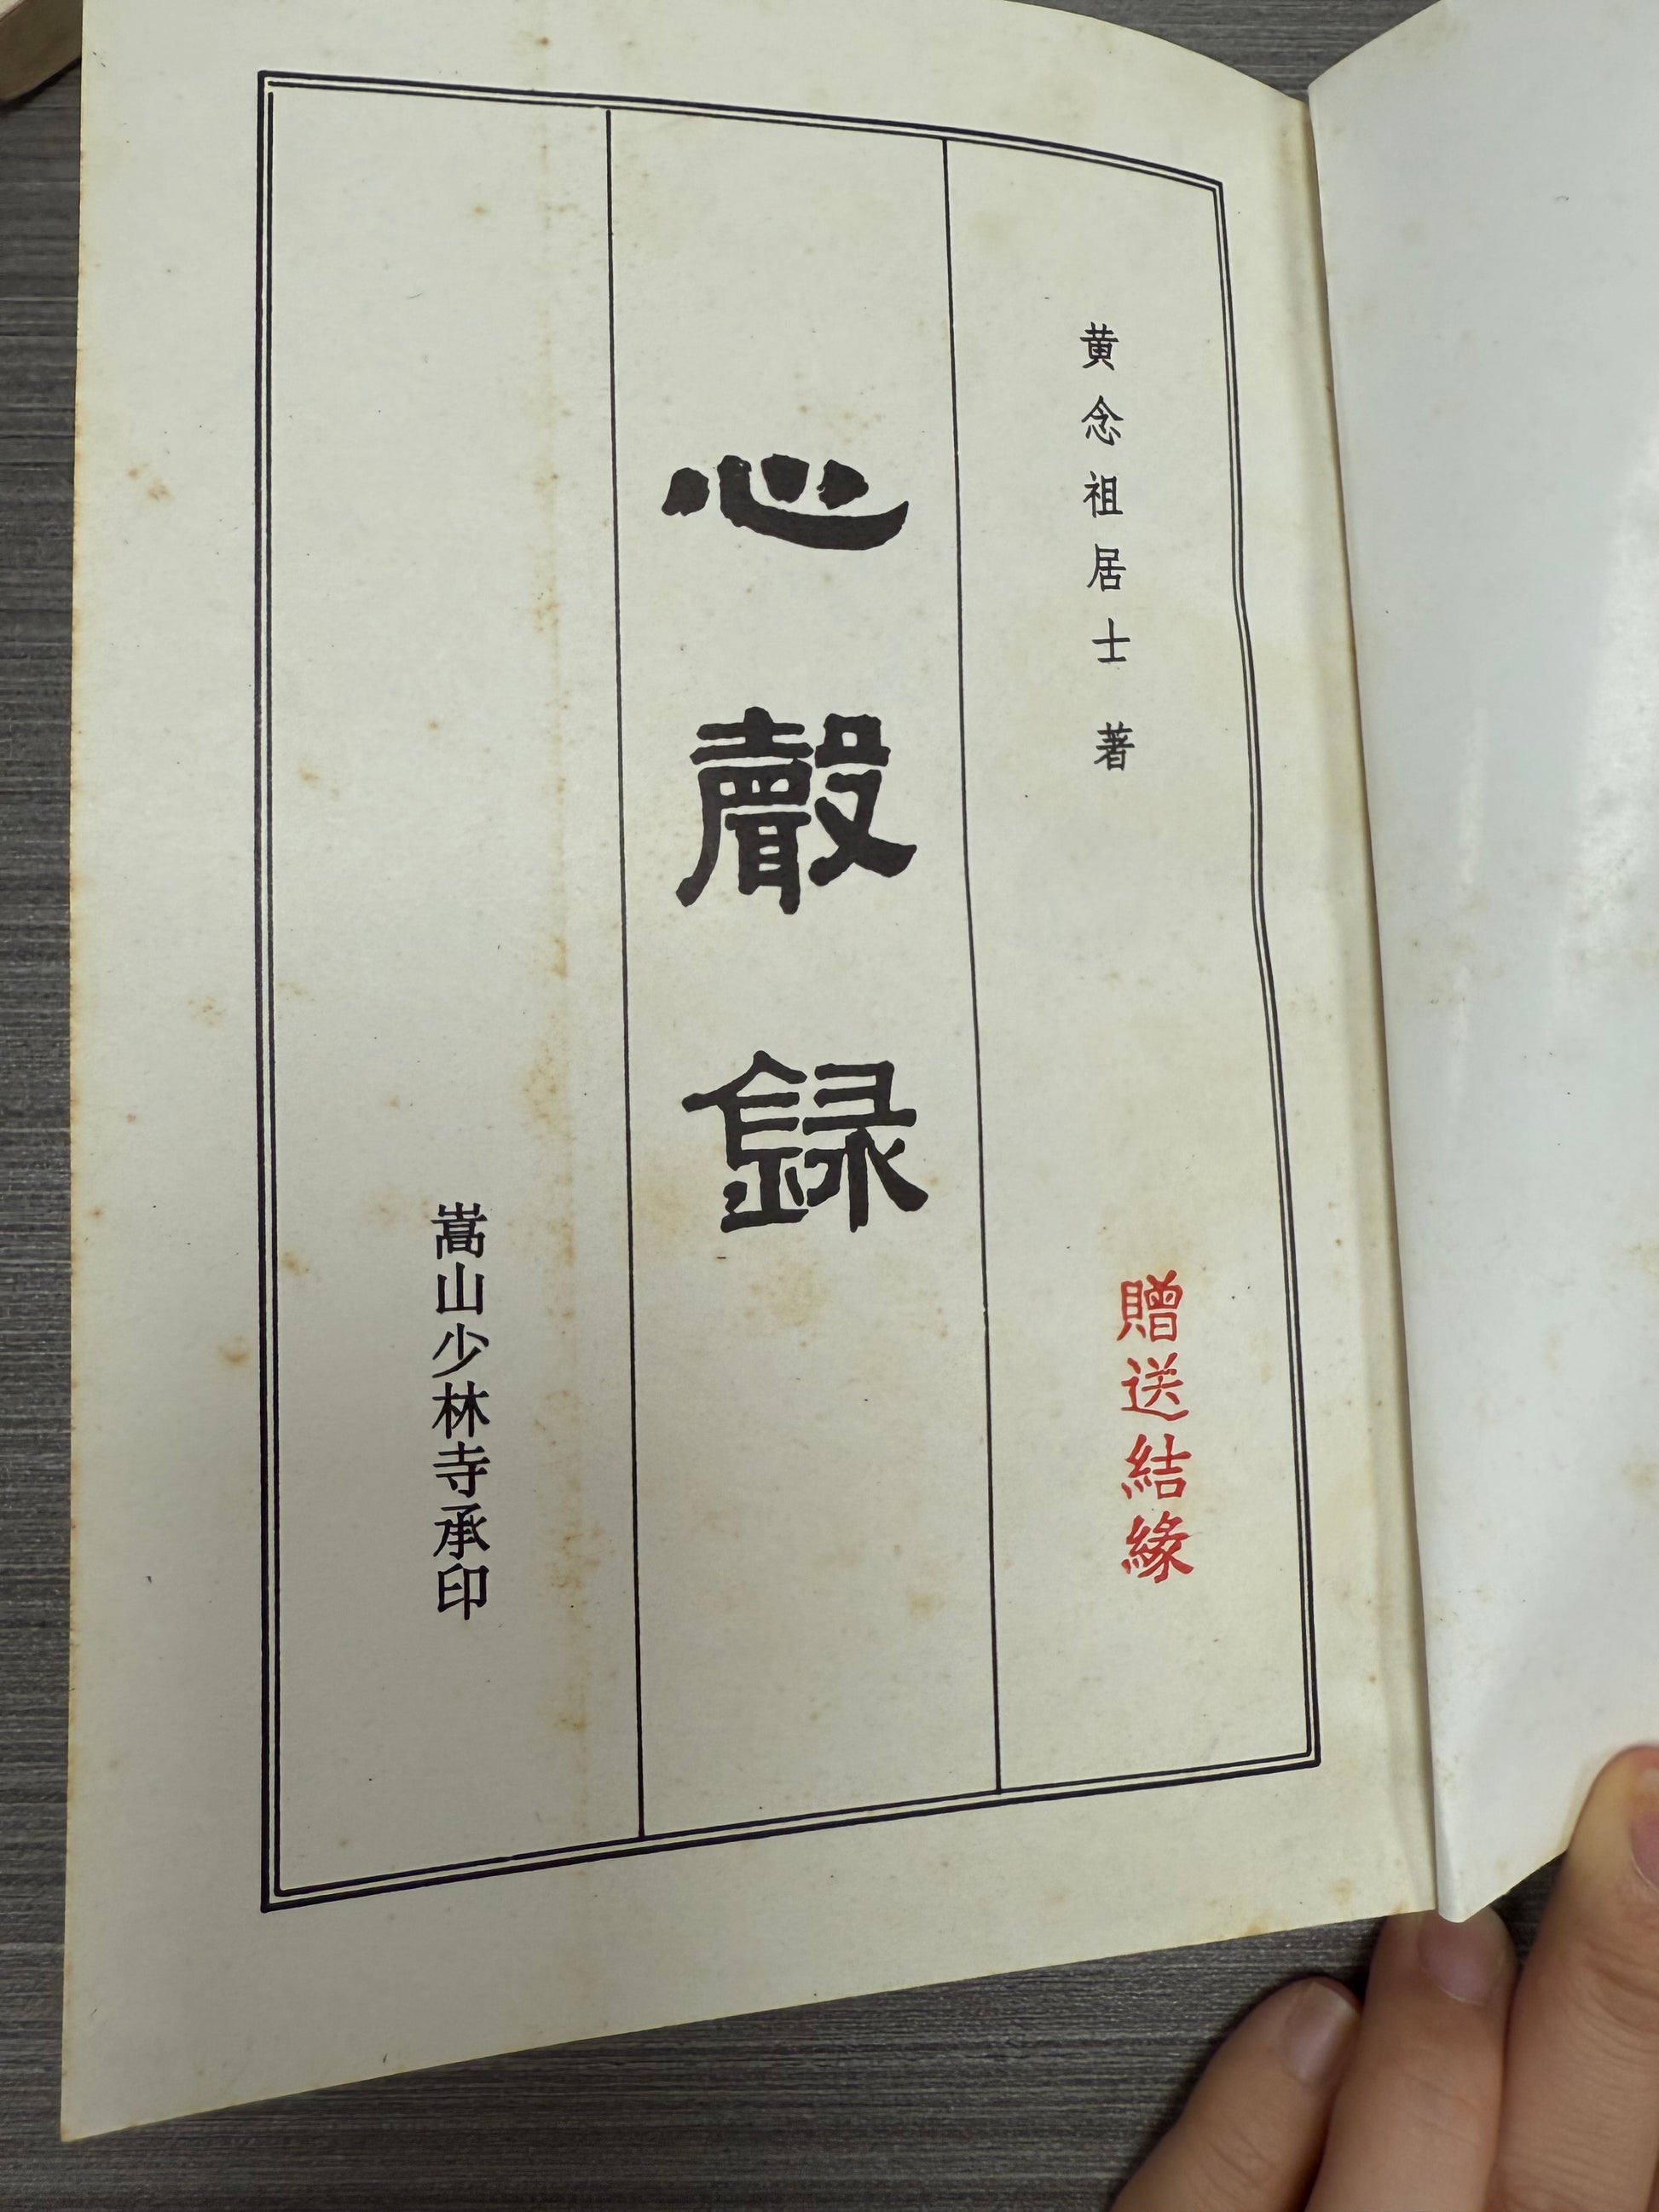 黄念祖居士 著
贈送結緣
心聲録
嵩山少林寺承印